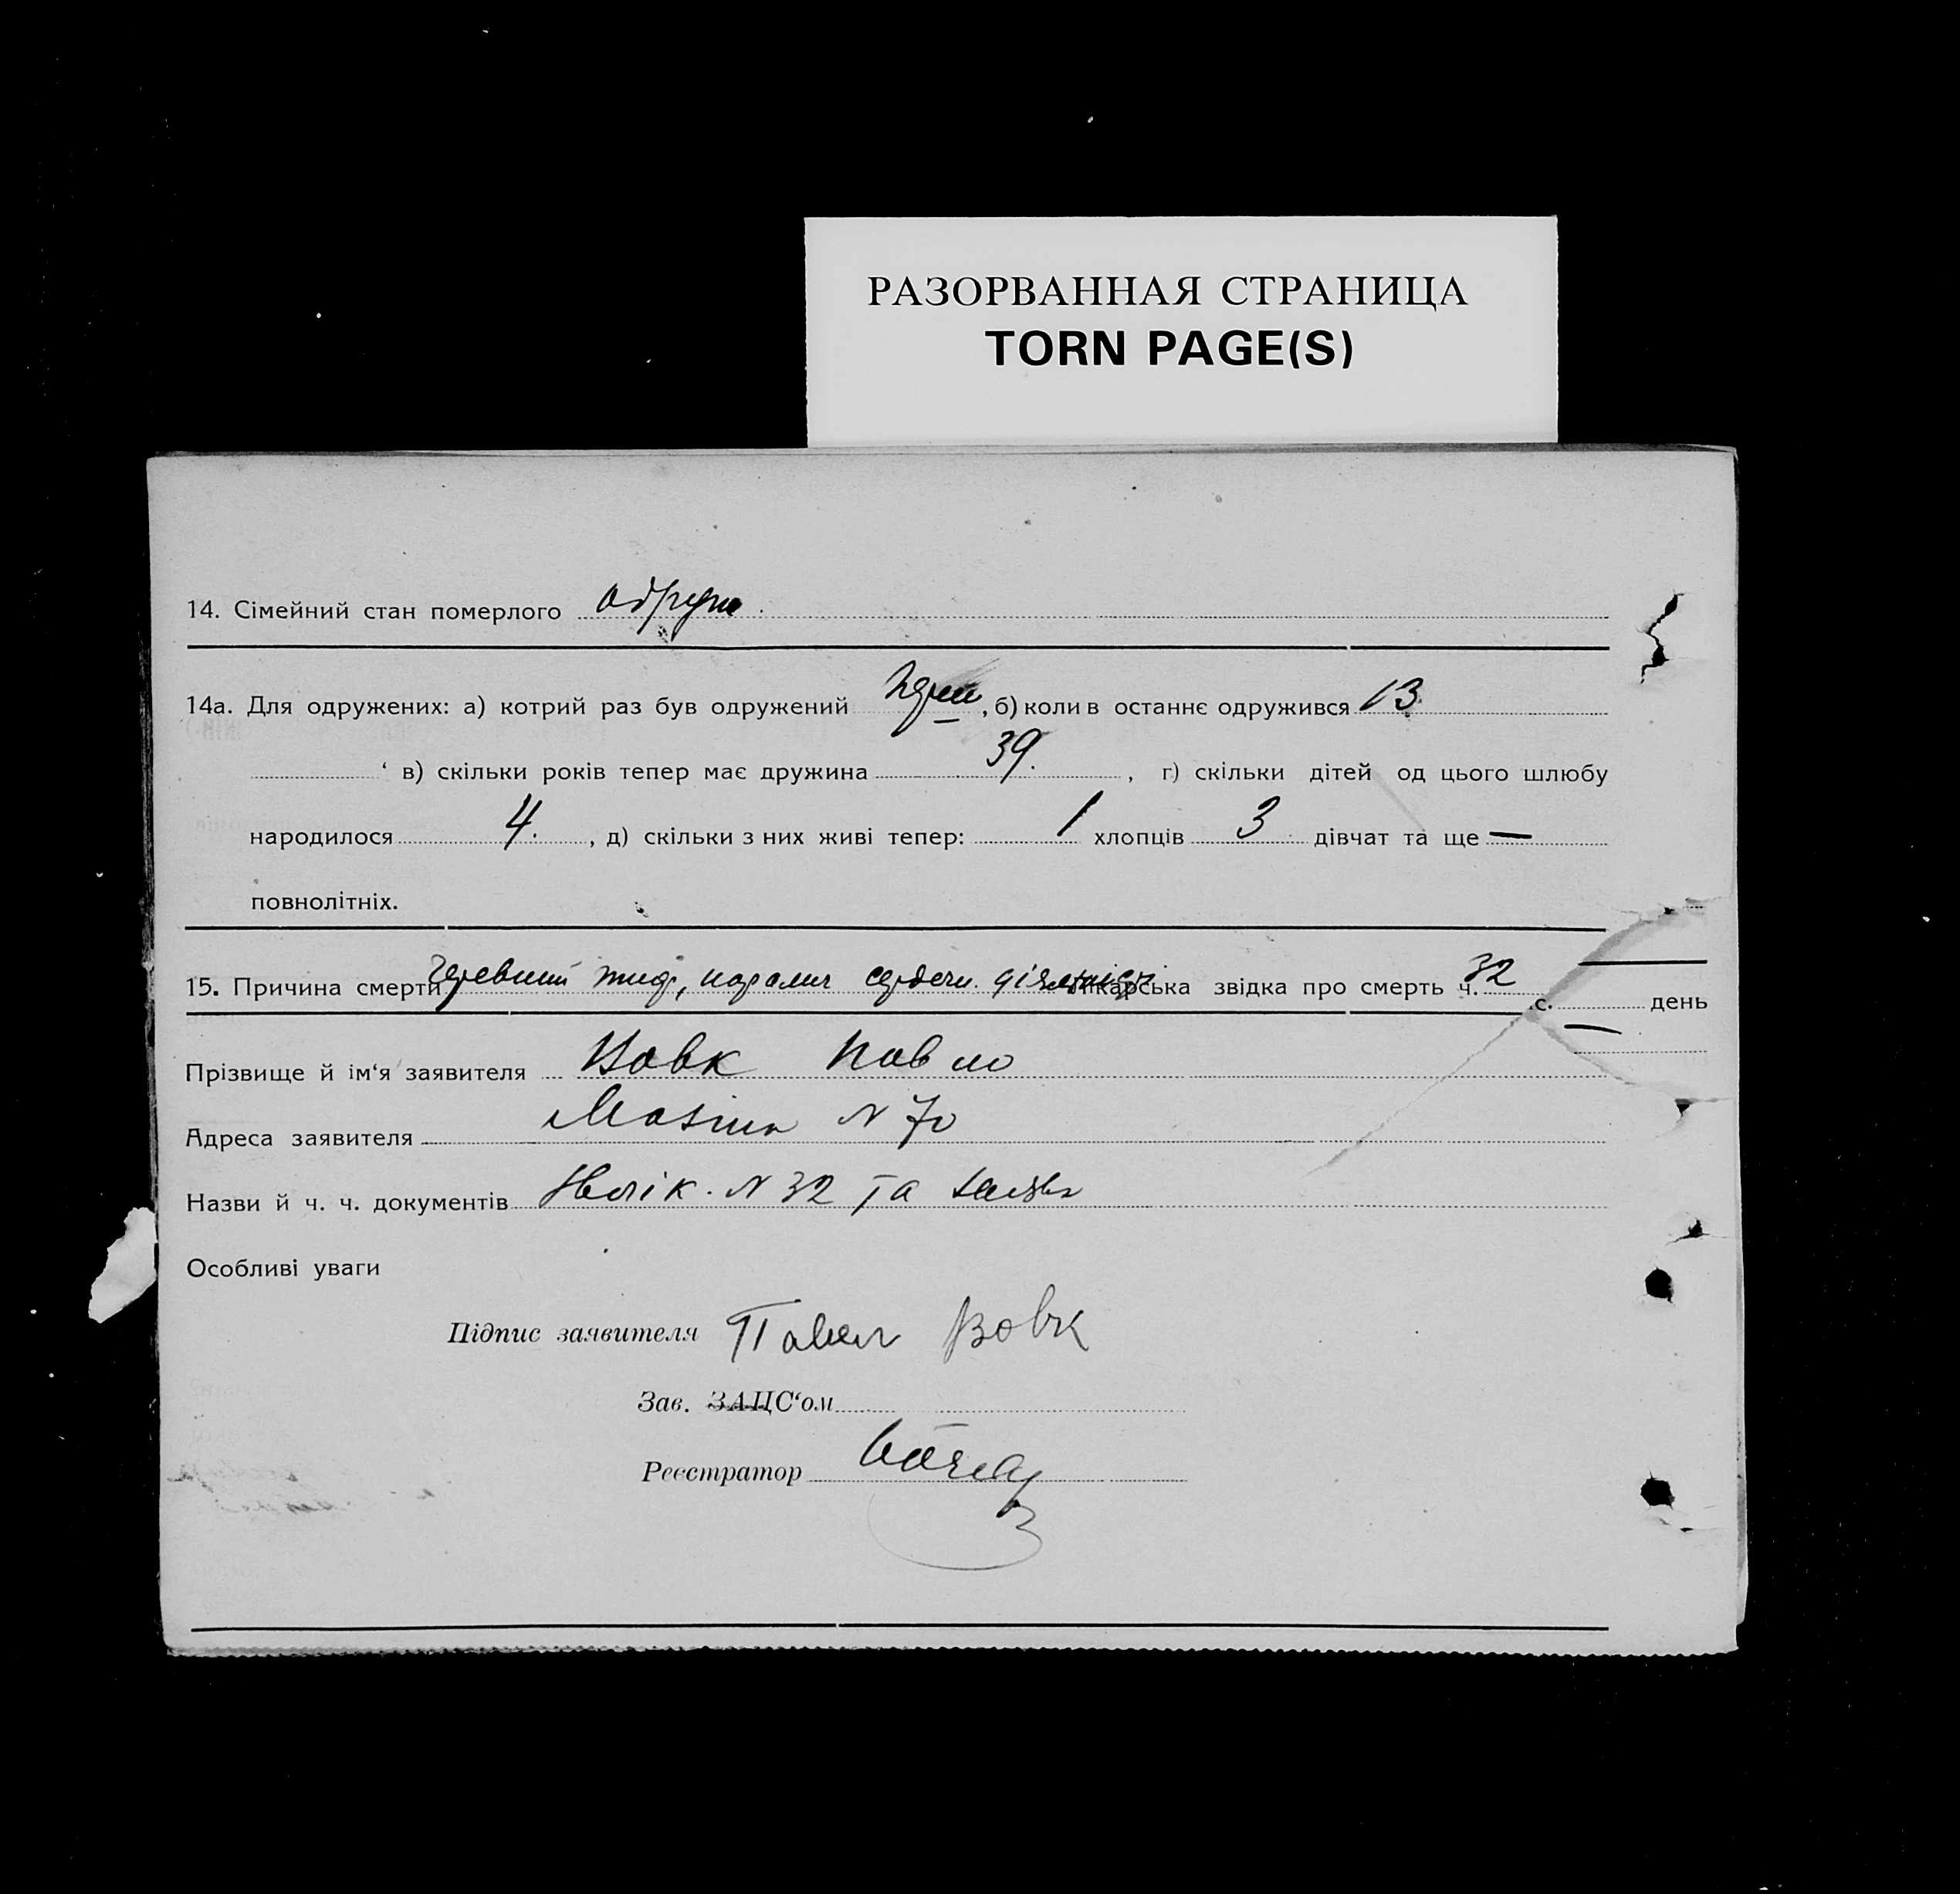 РАЗОРВАННАЯ СТРАНИЦА
TORN PAGE(S)
14. Сімейний стан померлого одруж.
14а. Для одружених: а) котрий раз був одружений , б) коли в останнє одружився 13
‘ в) скільки років тепер має дружина 39. , г) скільки дітей од цього шлюбу
народилося 4. , д) скільки з них живі тепер: 1 хлопців 3 дівчат та ще —
повнолітніх.
15. Причина смерти тиф, параліч сердечн. діяльності Лікарська звідка про смерть ч. 32
с. день
Прізвище й ім‘я заявителя Вовк Павло
Адреса заявителя N 70
Назви й ч. ч. документів N 32 та заява
Особливі уваги
Підпис заявителя Павел Вовк
Зав. ЗАЦС‘ом
Реєстратор